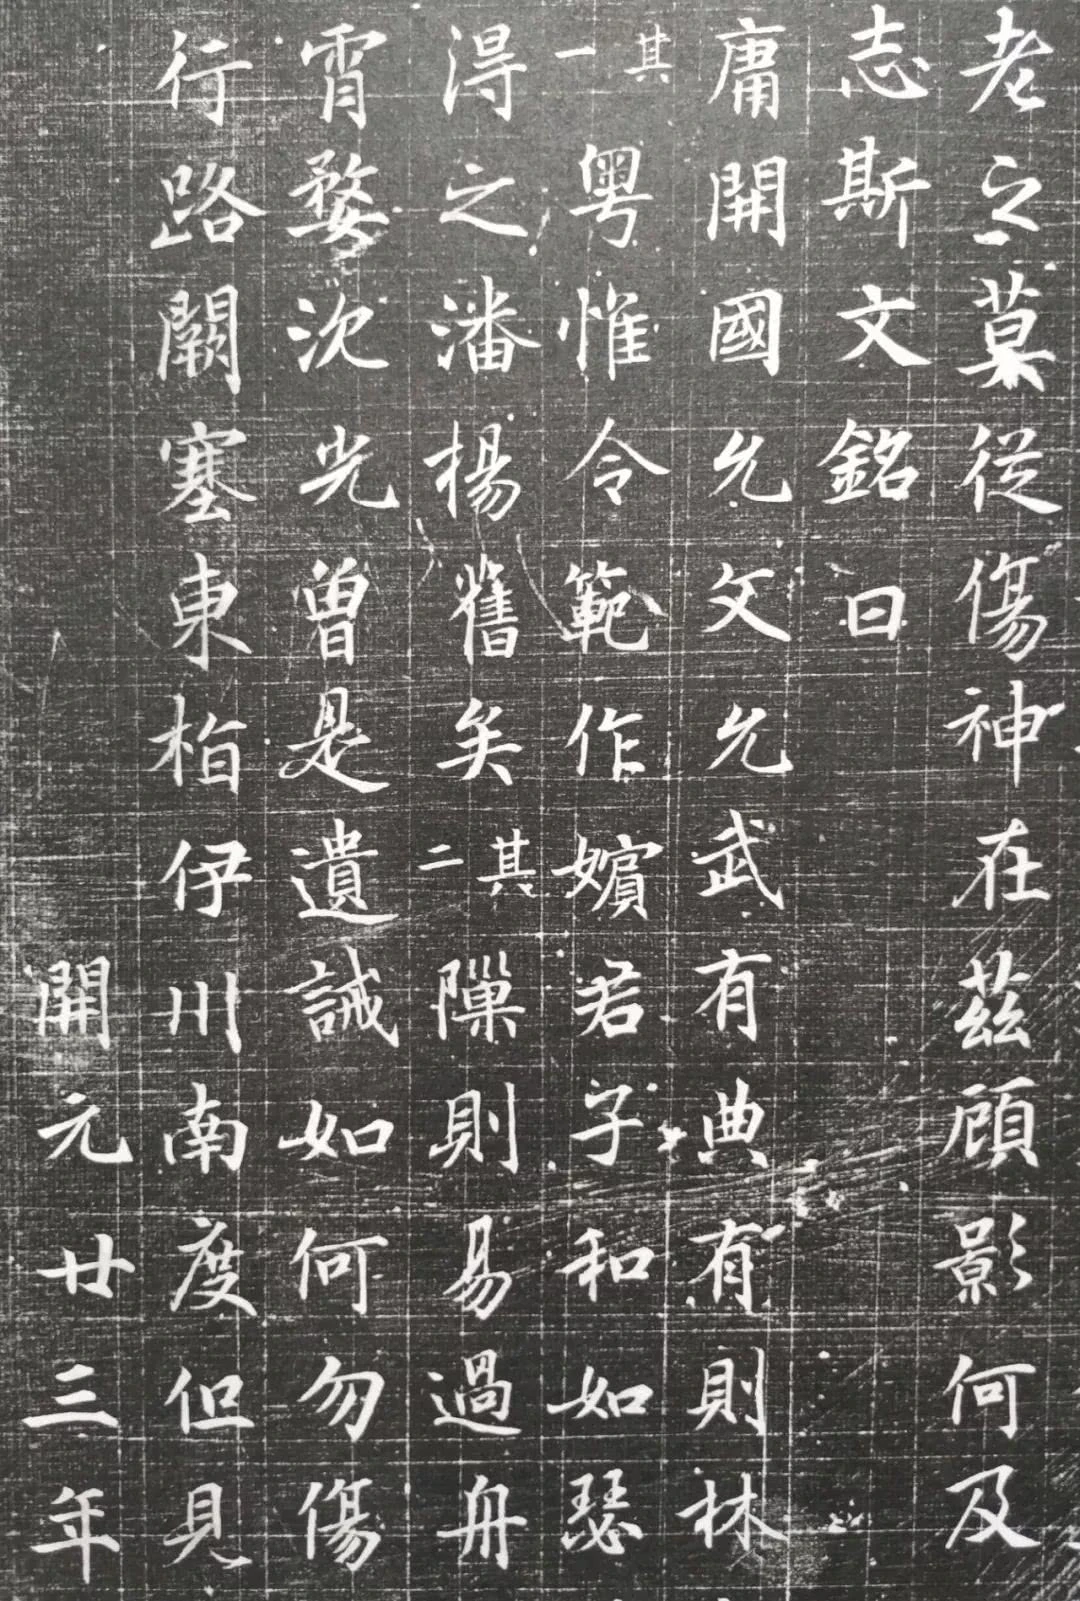 老之莫從傷神在茲顧影何及
志斯文銘曰
庸開國允文允武有典有則林
其一粤惟令範作嬪君子和如瑟
得之潘楊舊矣其二隟則易過舟
霄婺沉光曾是遺誡如何勿傷
行路闕塞東栢伊川南度但見
開元廿三年